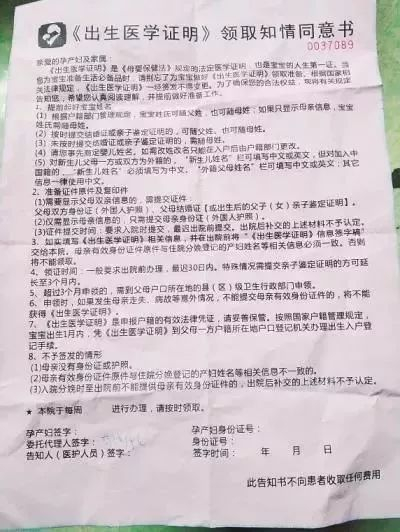 《出生医学证明》领取知情同意书
0037089
亲爱的孕产妇及家属:
《出生医学证明》是《母婴保健法》规定的法定医学证明,也是宝宝的人生第一证。当
您为宝宝准备生活必备品时,请别忘了为宝宝做好《出生医学证明》领取准备。根据国家相
关法律规定,《出生医学证明》一经签发不得变更。为了确保您的合法权益,现将有关规定
告知您,希望您认真阅读理解,并提前做好准备工作。
1、提前起好宝宝姓名
(1)根据户籍部门管理规定,宝宝姓氏可随父姓,也可随母姓,如果只显示母亲信息,宝宝
姓氏需随母姓。
(2)按时提交结婚证或亲子鉴定证明的,可随父姓、也可随母姓。
(3)未按时提交结婚证或亲子鉴定证明的,需随母姓。
(4)请您事先商定婴儿姓名,如需改姓改名只能在入户后由户籍部门更改。
(5)对新生儿父母一方或双方为外籍的,"新生儿姓名"栏可填写中文或英文,但对加入中
国籍的,"新生儿姓名"必须填写为中文,"外籍父母姓名"栏可填写中文或英文;其它
信息一律使用中文。
2、准备证件原件及复印件
(1)需要显示父母双亲信息的,须提交证件:
父母双方身份证(外国人护照)、父母结婚证【或出生后的父子(女)亲子鉴定证明】。
(2)仅需显示母亲信息的,只需提交母亲身份证(外国人护照)。
(3)证件提交时间:要求入院时提交,最迟出院前提交。出院后补交的上述材料不予认定。
3、如实填写《出生医学证明》相关信息,并在出院前将"《出生医学证明》信息签字稿"
交给本院,母亲有效身份证件原件与住院分娩登记的产妇姓名等相关信息必须一致。否则
将不能领取。
4、领证时间:一般要求出院前办理,最迟30日内。特殊情况需提交亲子鉴定证明的方可延
长至3个月内。
5、超过3个月申领的,需到父母户口所在地的县(区)级卫生行政部门申领。
6、申领时,如果发生母亲走失、病故等意外情况,不能提交母亲有效身份证件的,将不能
获得《出生医学证明》。
7、《出生医学证明》是申报户籍的有效法律凭证,请妥善保管。按照国家户籍管理规定,
宝宝出生1月内,凭《出生医学证明》到父母一方户籍所在地户口登记机关办理出生入户登
记手续。
8、不予签发的情形
(1)母亲没有身份证或护照。
(2)母亲有效身份证件原件与住院分娩登记的产妇姓名等相关信息不一致的。
(3)入院分娩时至出院前不能提供母亲有效身份证件的,出院后补交的上述材料不予认定。
★ 本院于每周 进行办理,请按时领取。
孕产妇签字: 孕产妇身份证号:
委托代理人签字: 身份证号:
告知人(医护人员)签字: 签字时间: 年 月 日
此告知书不向患者收取任何费用